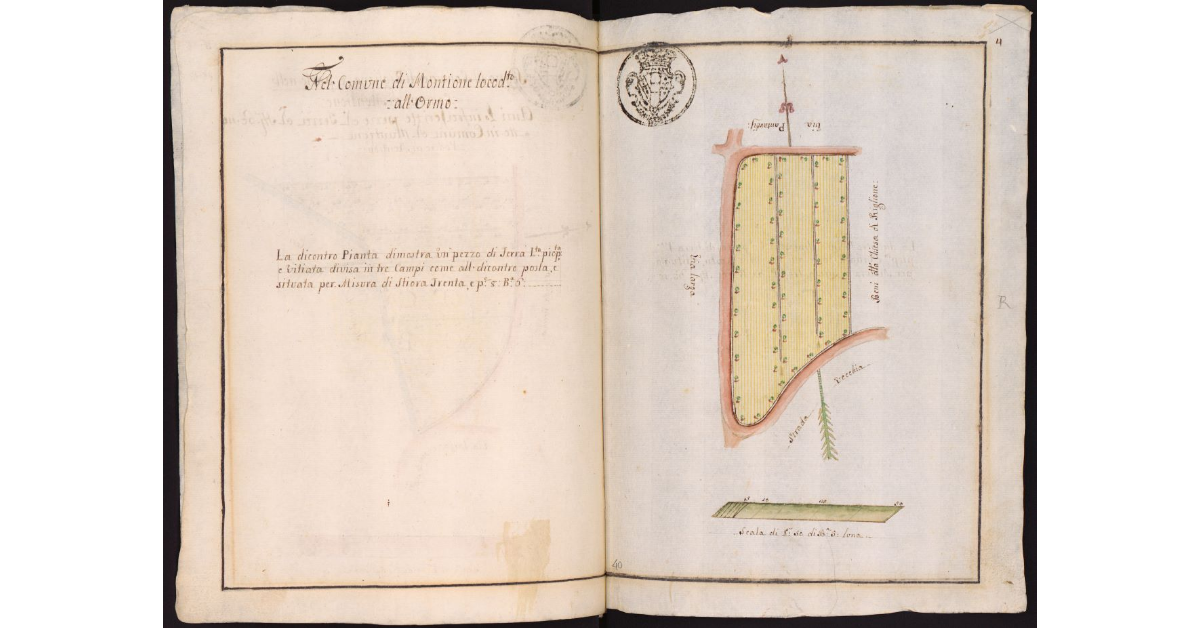 Nel Comune di Montione locod.to
: all'Ormo:
La dicontro Pianta dimostra un pezzo di Terra L.ta piop.ta
e Vitiata divisa in tre Campi come all dicontro posta, e
situata per Misura di Stiora Trenta, e p.i 5: B.a 3
4
Via
Via larga
Beni alla Chiesa di Riglione:
Strada
Vecchia
Scala di
40
R